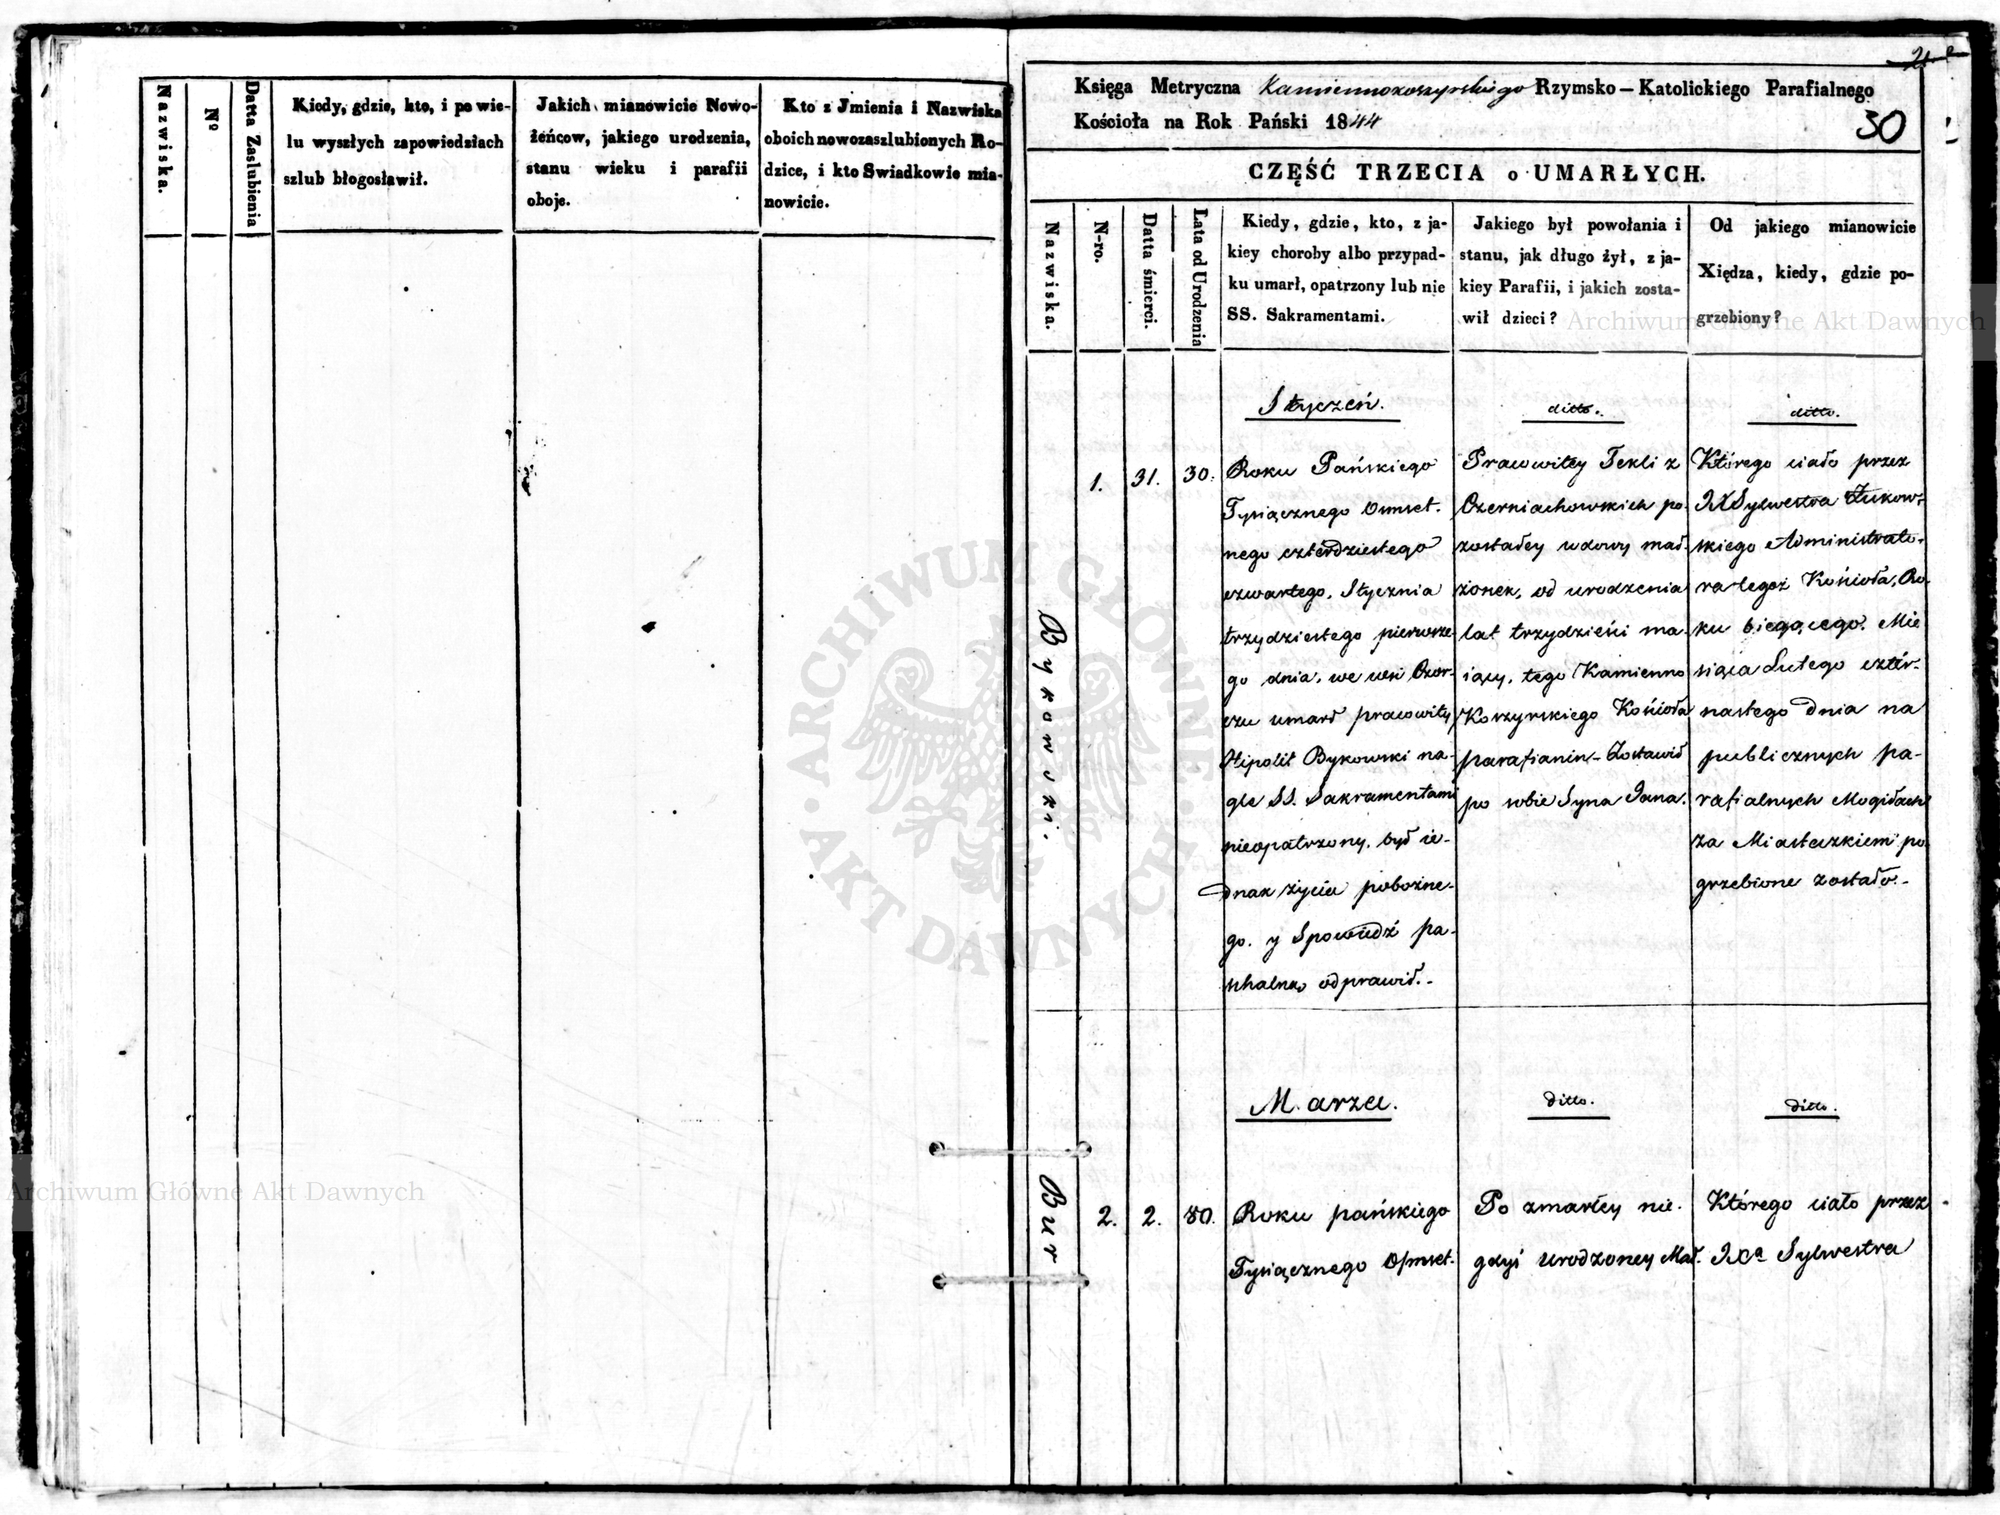 Nazwiska.
Nº
Datta Zaslubienia
Kiedy, gdzie, kto, i po wie-
lu wyszłych zapowiedziach
szlub błogosławił.
Jakich mianowicie Nowo-
żeńcow, jakiego urodzenia,
stanu wieku i parafii
oboje.
Kto z Jmienia i Nazwiska
oboich nowozaszlubionych Ro-
dzice, i kto Swiadkowie mia-
nowicie.
30
Księga Metryczna Kamiennokoszyrskiego Rzymsko-Katolickiego Parafialnego
Kościoła na Rok Pański 1844
CZĘŚĆ TRZECIA o UMARŁYCH.
Nazwiska.
N-ro.
Datta śmierci.
Lata od Urodzenia
Kiedy, gdzie, kto, z ja-
kiey choroby albo przypad-
ku umarł, opatrzony lub nie
SS. Sakramentami.
Jakiego był powołania i
stanu, jak długo żył, z ja-
kiey Parafii, i jakich zosta-
wił dzieci?
Od jakiego mianowicie
Xiędza, kiedy, gdzie po-
grzebiony?
Bykowski.
1.
31.
30.
Styczeń.
Roku Pańskiego
Tysiącznego Ośmset-
nego czterdziestego
czwartego, Stycznia
trzydziestego pierwsze-
go dnia, we wsi
umarł pracowity
Hipolit Bykowski na-
gle SS. Sakramentami
nieopatrzony, był ie-
dnak życia pobożne-
go. y Spowiedź pa-
schalną odprawił.-
ditto.
Pracowitey Tekli z
Czerniachowskich po-
zostałey wdowy mał-
żonek, od urodzenia
lat trzydzieści ma-
iący, tego Kamienno
Koszyrskiego Kościoła
parafianin- Zostawił
po sobie Syna Jana.
ditto.
Którego ciało przez
JX Sylwestra Żukow-
skiego Administrato-
ra tegoż Kościoła, Ro-
ku biegącego, Mie
siąca Lutego czter-
nastego Dnia na
publicznych pa-
rafialnych Mogiłach
za Miasteczkiem po-
grzebione zostało.-
Bur
2.
2.
80.
Marzec.
Roku pańskiego
Tysiącznego Ośmset-
ditto.
Po zmarłey nie-
gdyś Urodzoney Mał-
ditto.
Którego ciało przez
JXa Sylwestra
Archiwum Główne Akt Dawnych
Archiwum Główne Akt Dawnych
ARCHIWUM GŁÓWNE · AKT DAWNYCH ·